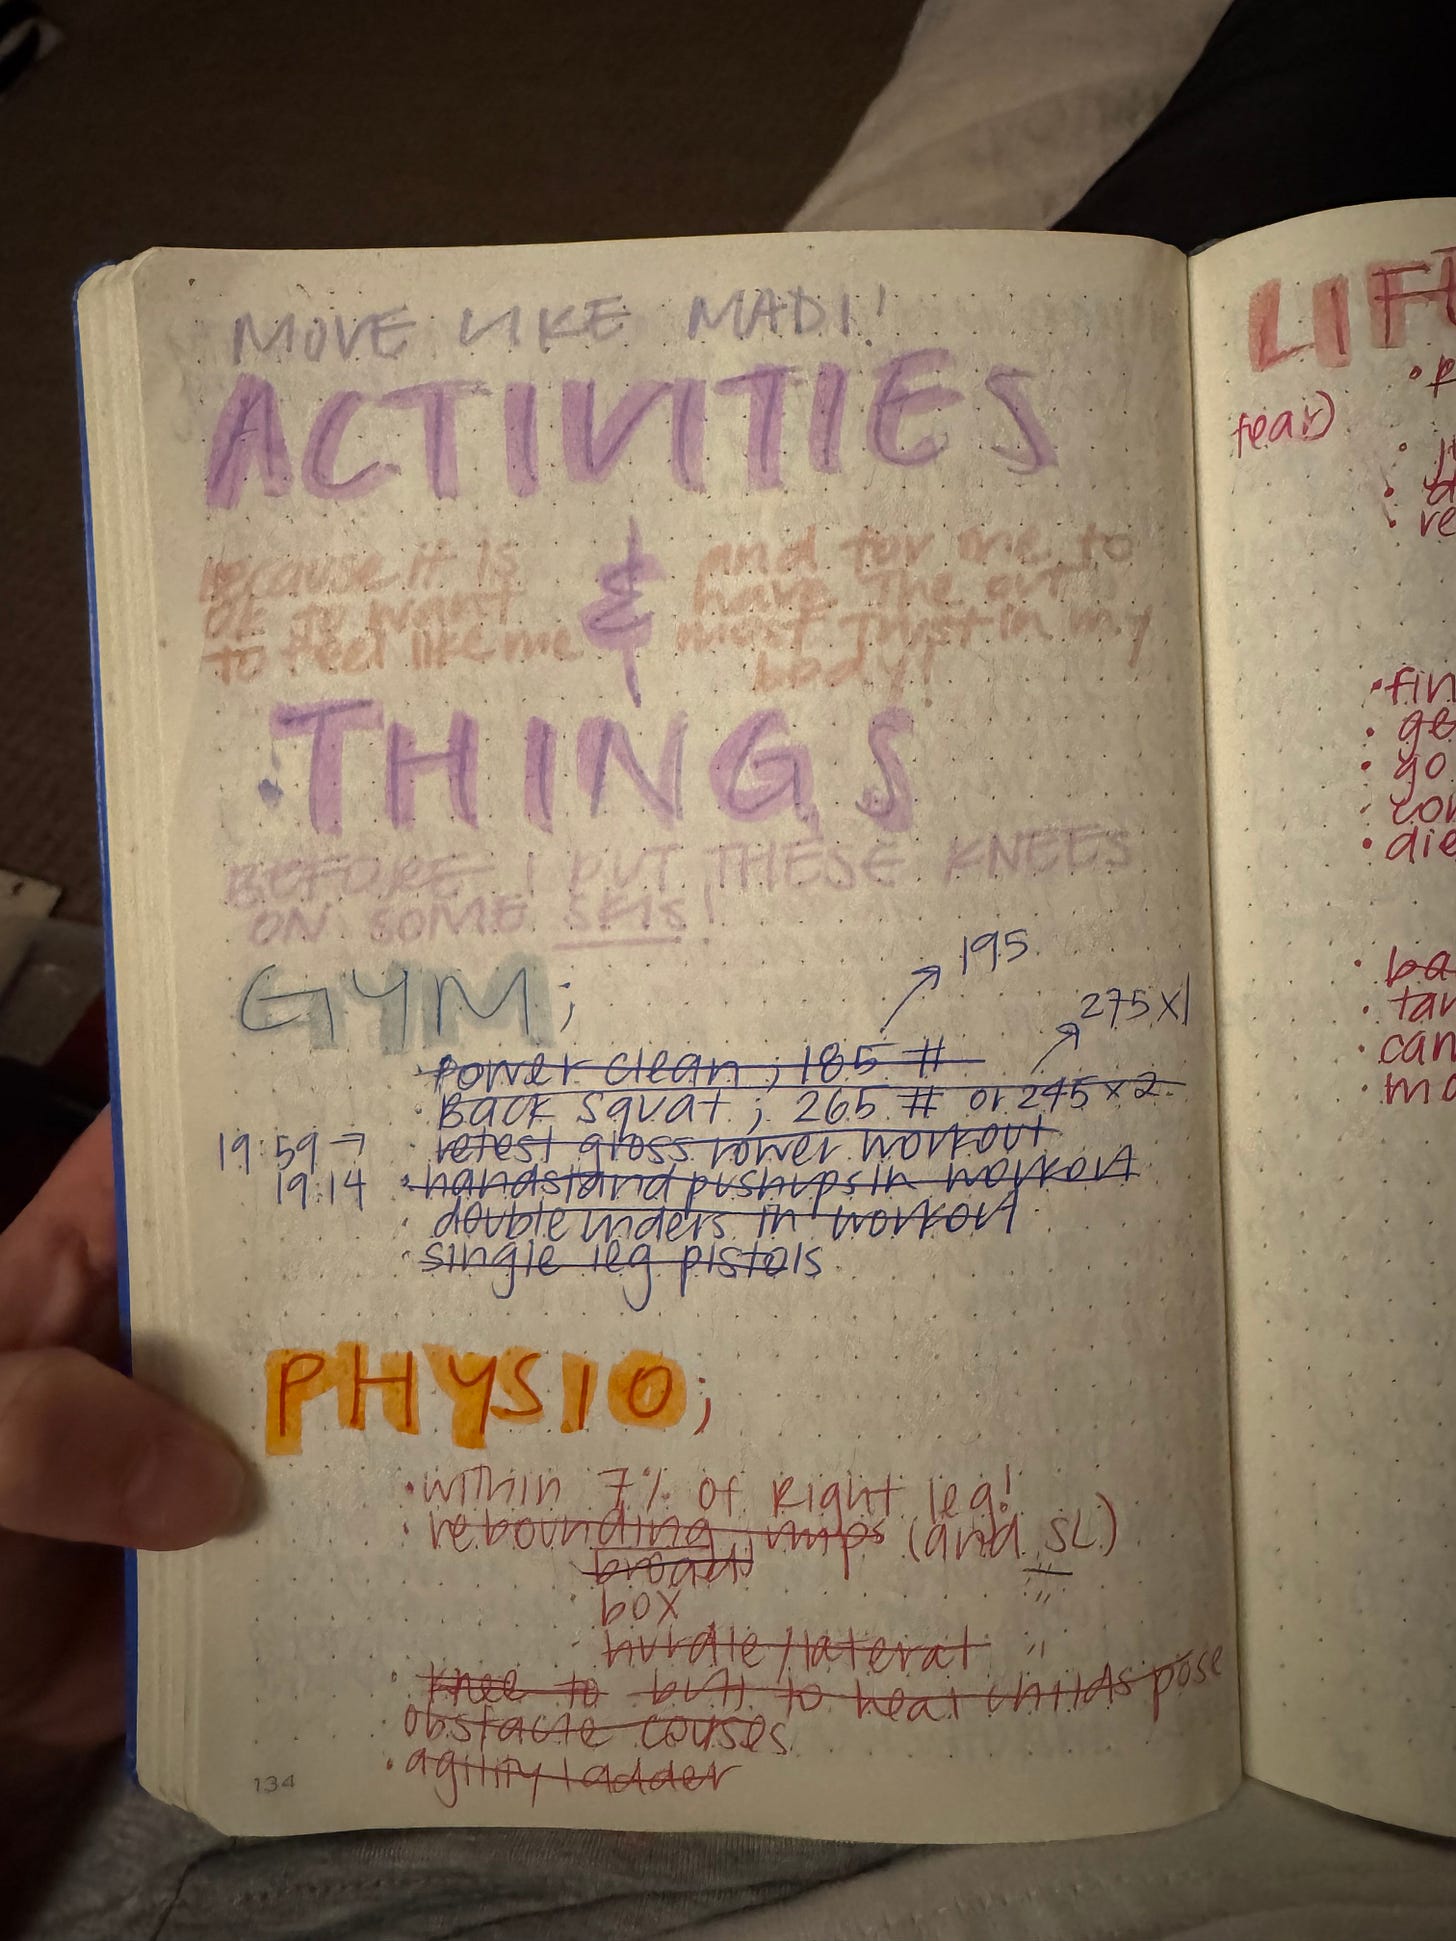 MOVE LIKE MADI!
ACTIVITIES
because it is
ok to want
to feel like me
&
and for me to
have the out
most trust in my
body!
THINGS
BEFORE I PUT THESE KNEES
ON SOME SKIS!
GYM;
195
275 x 1
power clean; 185 #
Back squat; 265 # or 245 x 2
19:59 → retest gross rower workout
19:14 handstand pushups in workout
double unders in workout
single leg pistols
PHYSIO;
within 7% of Right leg!
rebounding jumps (and SL)
broad "
box
hurdle/lateral "
knee to butt to heal childs pose
obstacle courses
agility ladder
134
LIF
fear)
fin
ge
go
con
die
ba
tar
can
ma